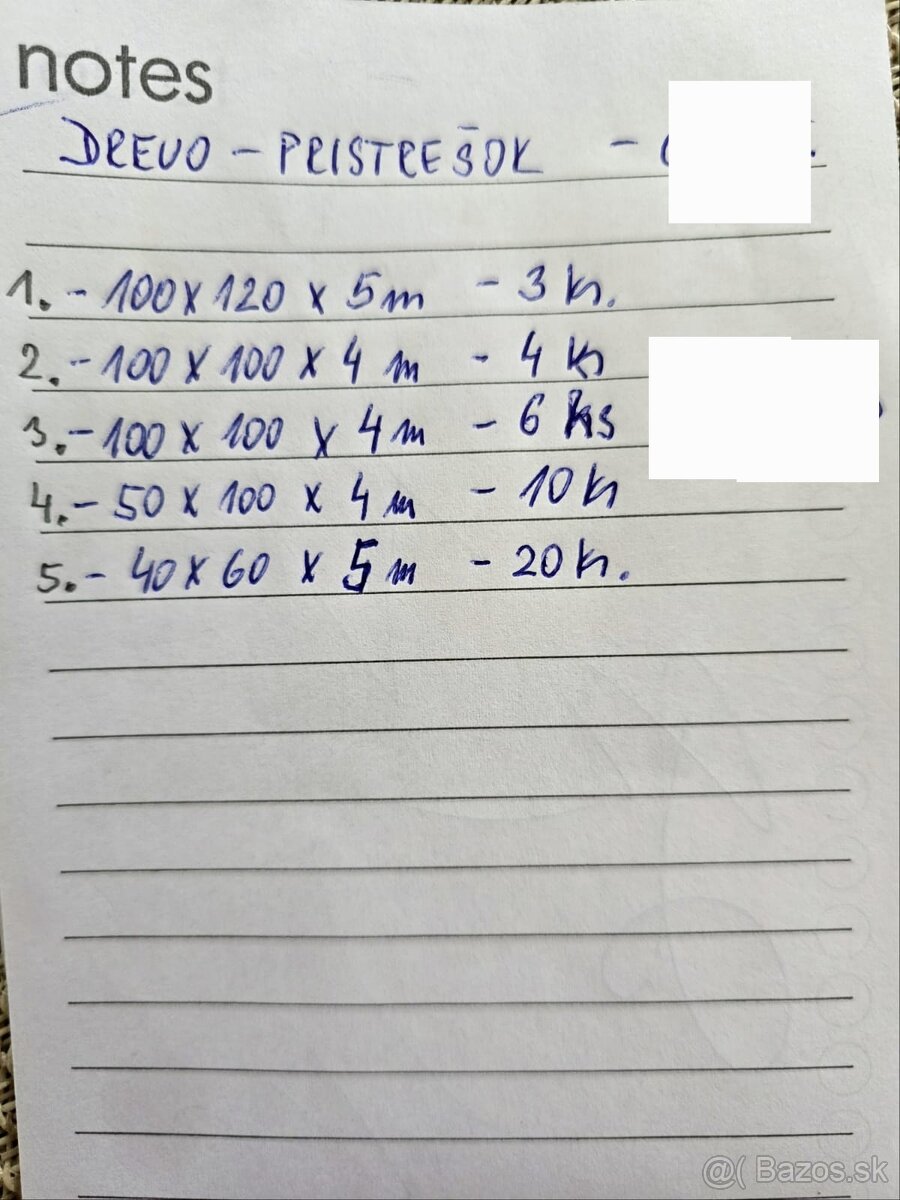 notes
DREVO - PRISTREŠOK -
1. - 100 x 120 x 5m - 3 k.
2. - 100 x 100 x 4 m - 4 k
3. - 100 x 100 x 4m - 6 ks
4. - 50 x 100 x 4 m - 10 k
5. - 40 x 60 x 5 m - 20 k.
@( Bazos.sk